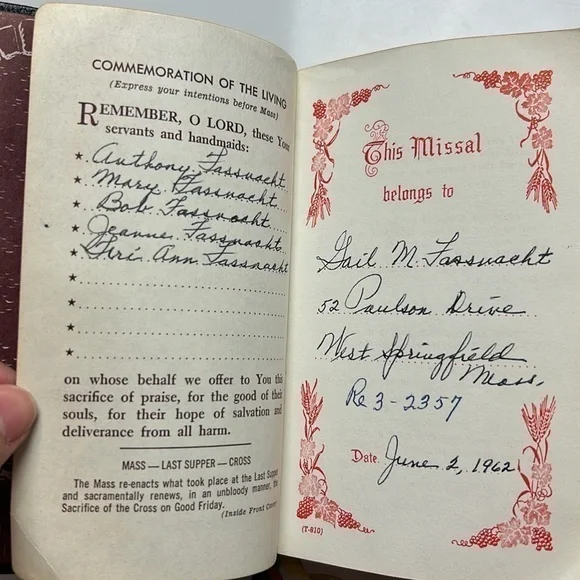 COMMEMORATION OF THE LIVING
(Express your intentions before Mass)
REMEMBER, O LORD, these Your
servants and handmaids:
★ Anthony Fassnacht
★ Mary Fassnacht
★ Bob Fassnacht
★ Jeanne Fassnacht
★ Geri Ann Fassnacht
★
★
★
★
on whose behalf we offer to You this
sacrifice of praise, for the good of their
souls, for their hope of salvation and
deliverance from all harm.
MASS — LAST SUPPER — CROSS
The Mass re-enacts what took place at the Last Supper
and sacramentally renews, in an unbloody manner, the
Sacrifice of the Cross on Good Friday.
(Inside Front Cover)
This Missal
belongs to
Gail M. Fassnacht
52 Paulson Drive
West Springfield
Mass.
Re 3-2357
Date June 2, 1962
(T-810)